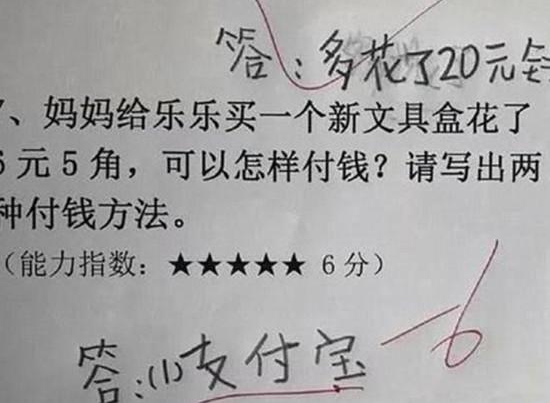 答：多花了20元钱
7、妈妈给乐乐买一个新文具盒花了
6元5角，可以怎样付钱？请写出两
种付钱方法。
（能力指数：★★★★★ 6分）
答：(1)支付宝 -6